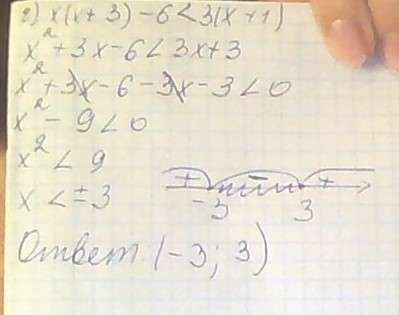 2) x(x+3)-6<3(x+1)
x²+3x-6<3x+3
x²+3x-6-3x-3<0
x²-9<0
x²<9
x<±3
+ − +
-3 3
Ответ (-3; 3)